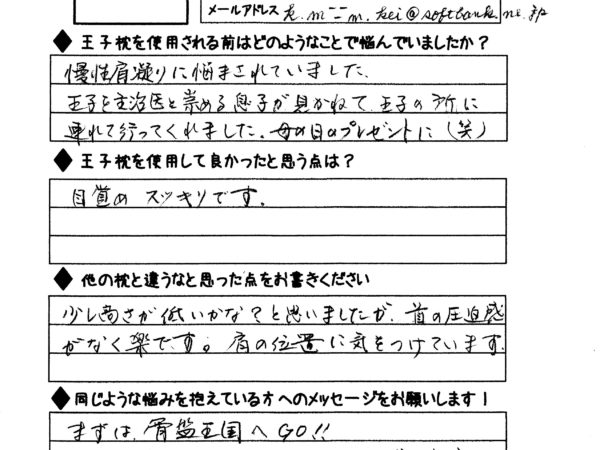 メールアドレス k.m--m.kei@softbank.ne.jp
◆ 王子枕を使用される前はどのようなことで悩んでいましたか?
慢性肩凝りに悩まされていました。
王子を主治医と崇める息子が見かねて、王子の所に
連れて行ってくれました。母の日のプレゼントに(笑)
◆ 王子枕を使用して良かったと思う点は?
目覚め スッキリです。
◆ 他の枕と違うなと思った点をお書きください
少し高さが低いかな?と思いましたが、首の圧迫感
がなく楽です。肩の位置に気をつけています。
◆ 同じような悩みを抱えている方へのメッセージをお願いします!
まずは、骨盤王国へGO!!